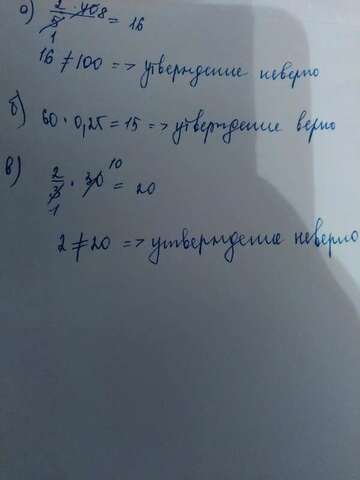 а) 2/5 · 40 8 = 16
1
16 ≠ 100 => утверждение неверно
б) 60 · 0,25 = 15 => утверждение верно
в) 2/3 · 30 10 = 20
1
2 ≠ 20 => утверждение неверно